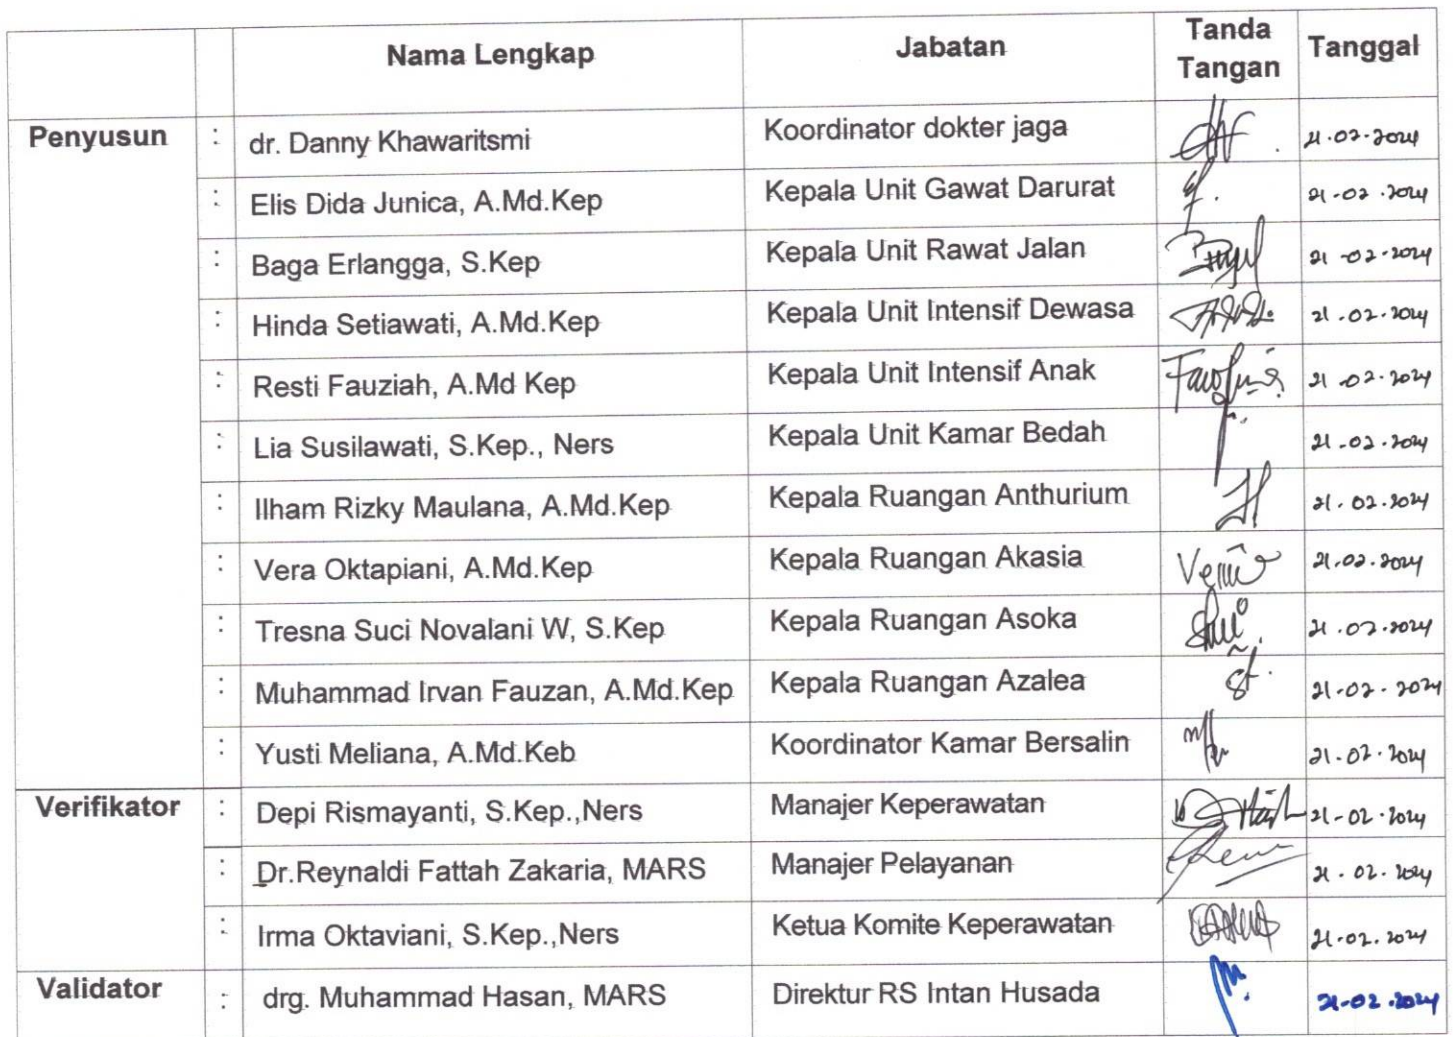 Nama Lengkap Jabatan Tanda Tangan Tanggal
Penyusun : dr. Danny Khawaritsmi Koordinator dokter jaga 21.02.2024
: Elis Dida Junica, A.Md.Kep Kepala Unit Gawat Darurat 21-02.2024
: Baga Erlangga, S.Kep Kepala Unit Rawat Jalan 21-02-2024
: Hinda Setiawati, A.Md.Kep Kepala Unit Intensif Dewasa 21.02.2024
: Resti Fauziah, A.Md Kep Kepala Unit Intensif Anak 21-02-2024
: Lia Susilawati, S.Kep., Ners Kepala Unit Kamar Bedah 21-02.2024
: Ilham Rizky Maulana, A.Md.Kep Kepala Ruangan Anthurium 21.02.2024
: Vera Oktapiani, A.Md.Kep Kepala Ruangan Akasia 21.02.2024
: Tresna Suci Novalani W, S.Kep Kepala Ruangan Asoka 21.02.2024
: Muhammad Irvan Fauzan, A.Md.Kep Kepala Ruangan Azalea 21-02-2024
: Yusti Meliana, A.Md.Keb Koordinator Kamar Bersalin 21-02-2024
Verifikator : Depi Rismayanti, S.Kep.,Ners Manajer Keperawatan 21-02-2024
: Dr.Reynaldi Fattah Zakaria, MARS Manajer Pelayanan 21.02.2024
: Irma Oktaviani, S.Kep.,Ners Ketua Komite Keperawatan 21.02.2024
Validator : drg. Muhammad Hasan, MARS Direktur RS Intan Husada 21-02.2024